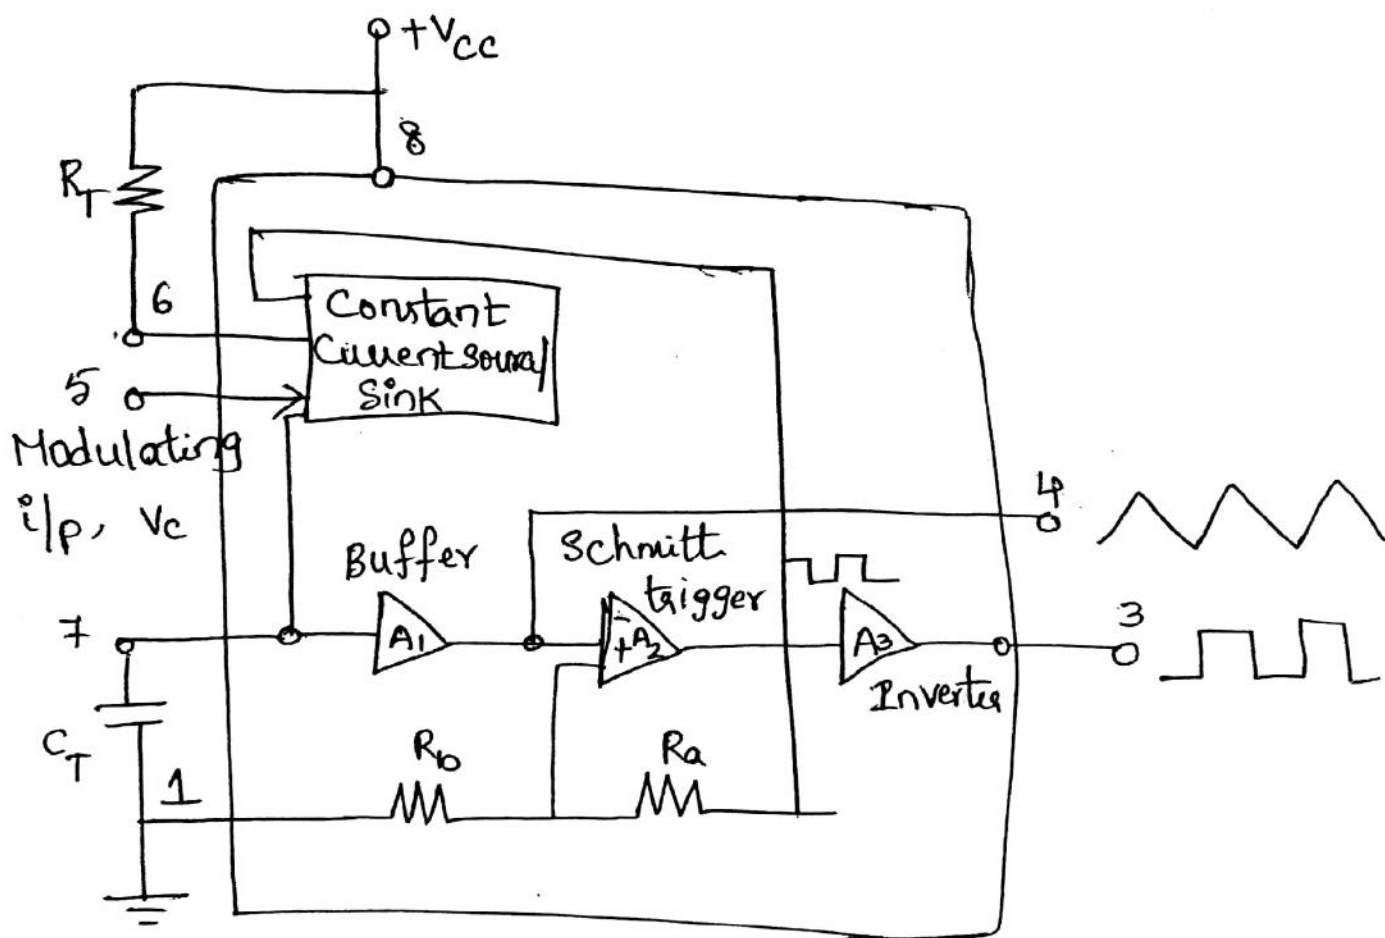 +Vcc
8
RT
6
Constant
Current source/
Sink
5
Modulating
i/p, Vc
4
Schmitt
trigger
Buffer
3
7
A1
- + A2
A3
Inverter
CT
Rb
Ra
1